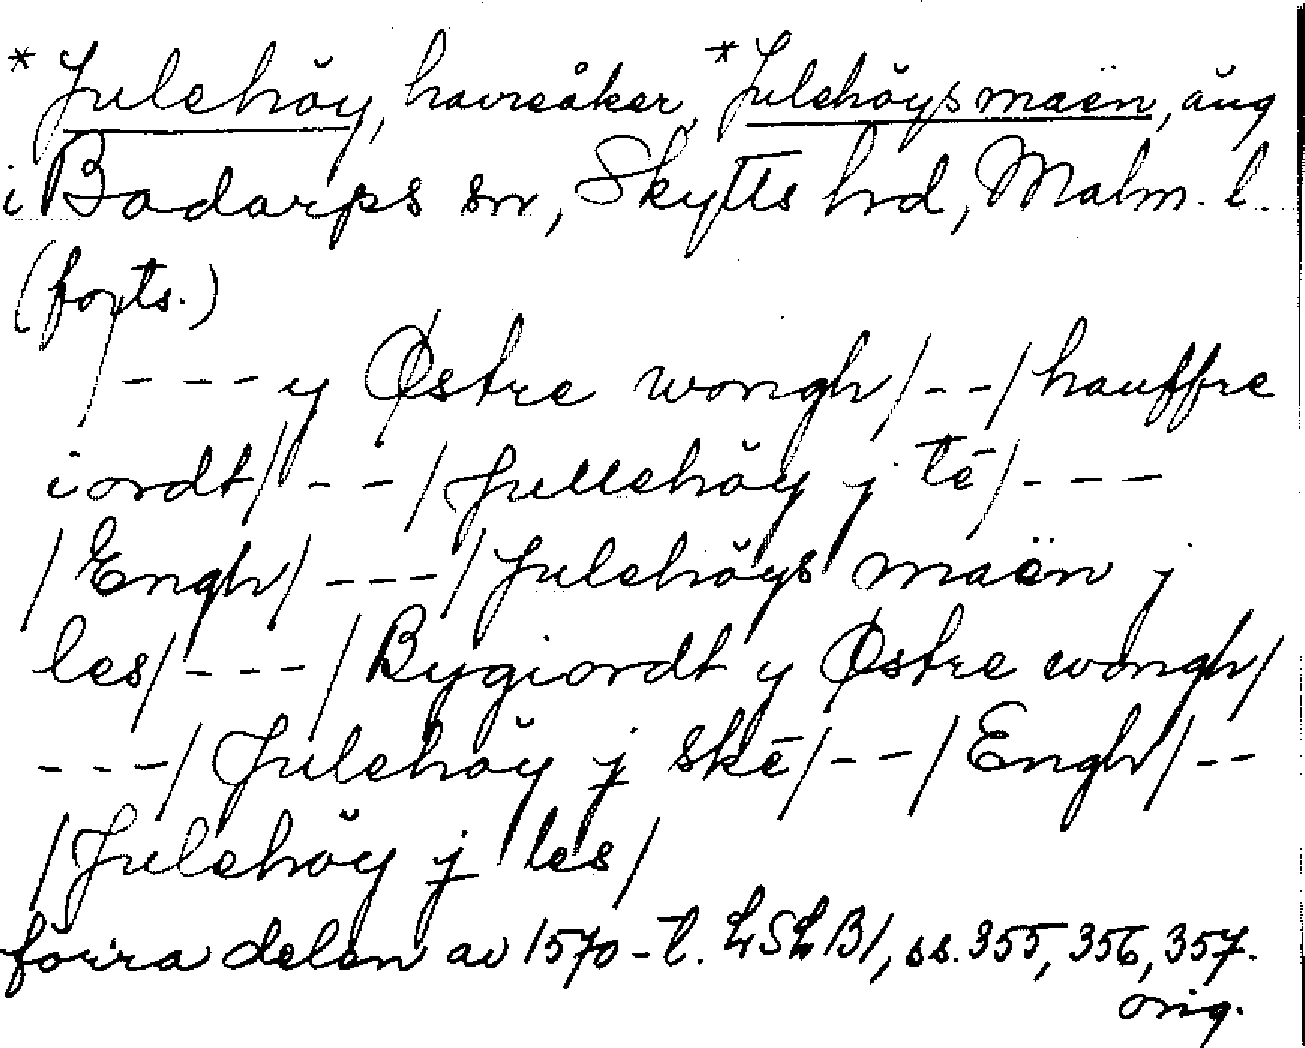 * Julehöy, havreåker, * Julehöys maën, äng
i Bodarps sn, Skytts hrd, Malm. l.
(forts.)
/---y Østre wongh/--/hauffre
iordt/--/Jullehöy j tē/---
/Engh/---/Julehöys maën j
les/---/Bygiordt y Østre wongh/
---/Julehöy j skē/--/Engh/--
/Julehöy j les/
förra delen av 1570-t. LSLB1, ss. 355, 356, 357.
orig.